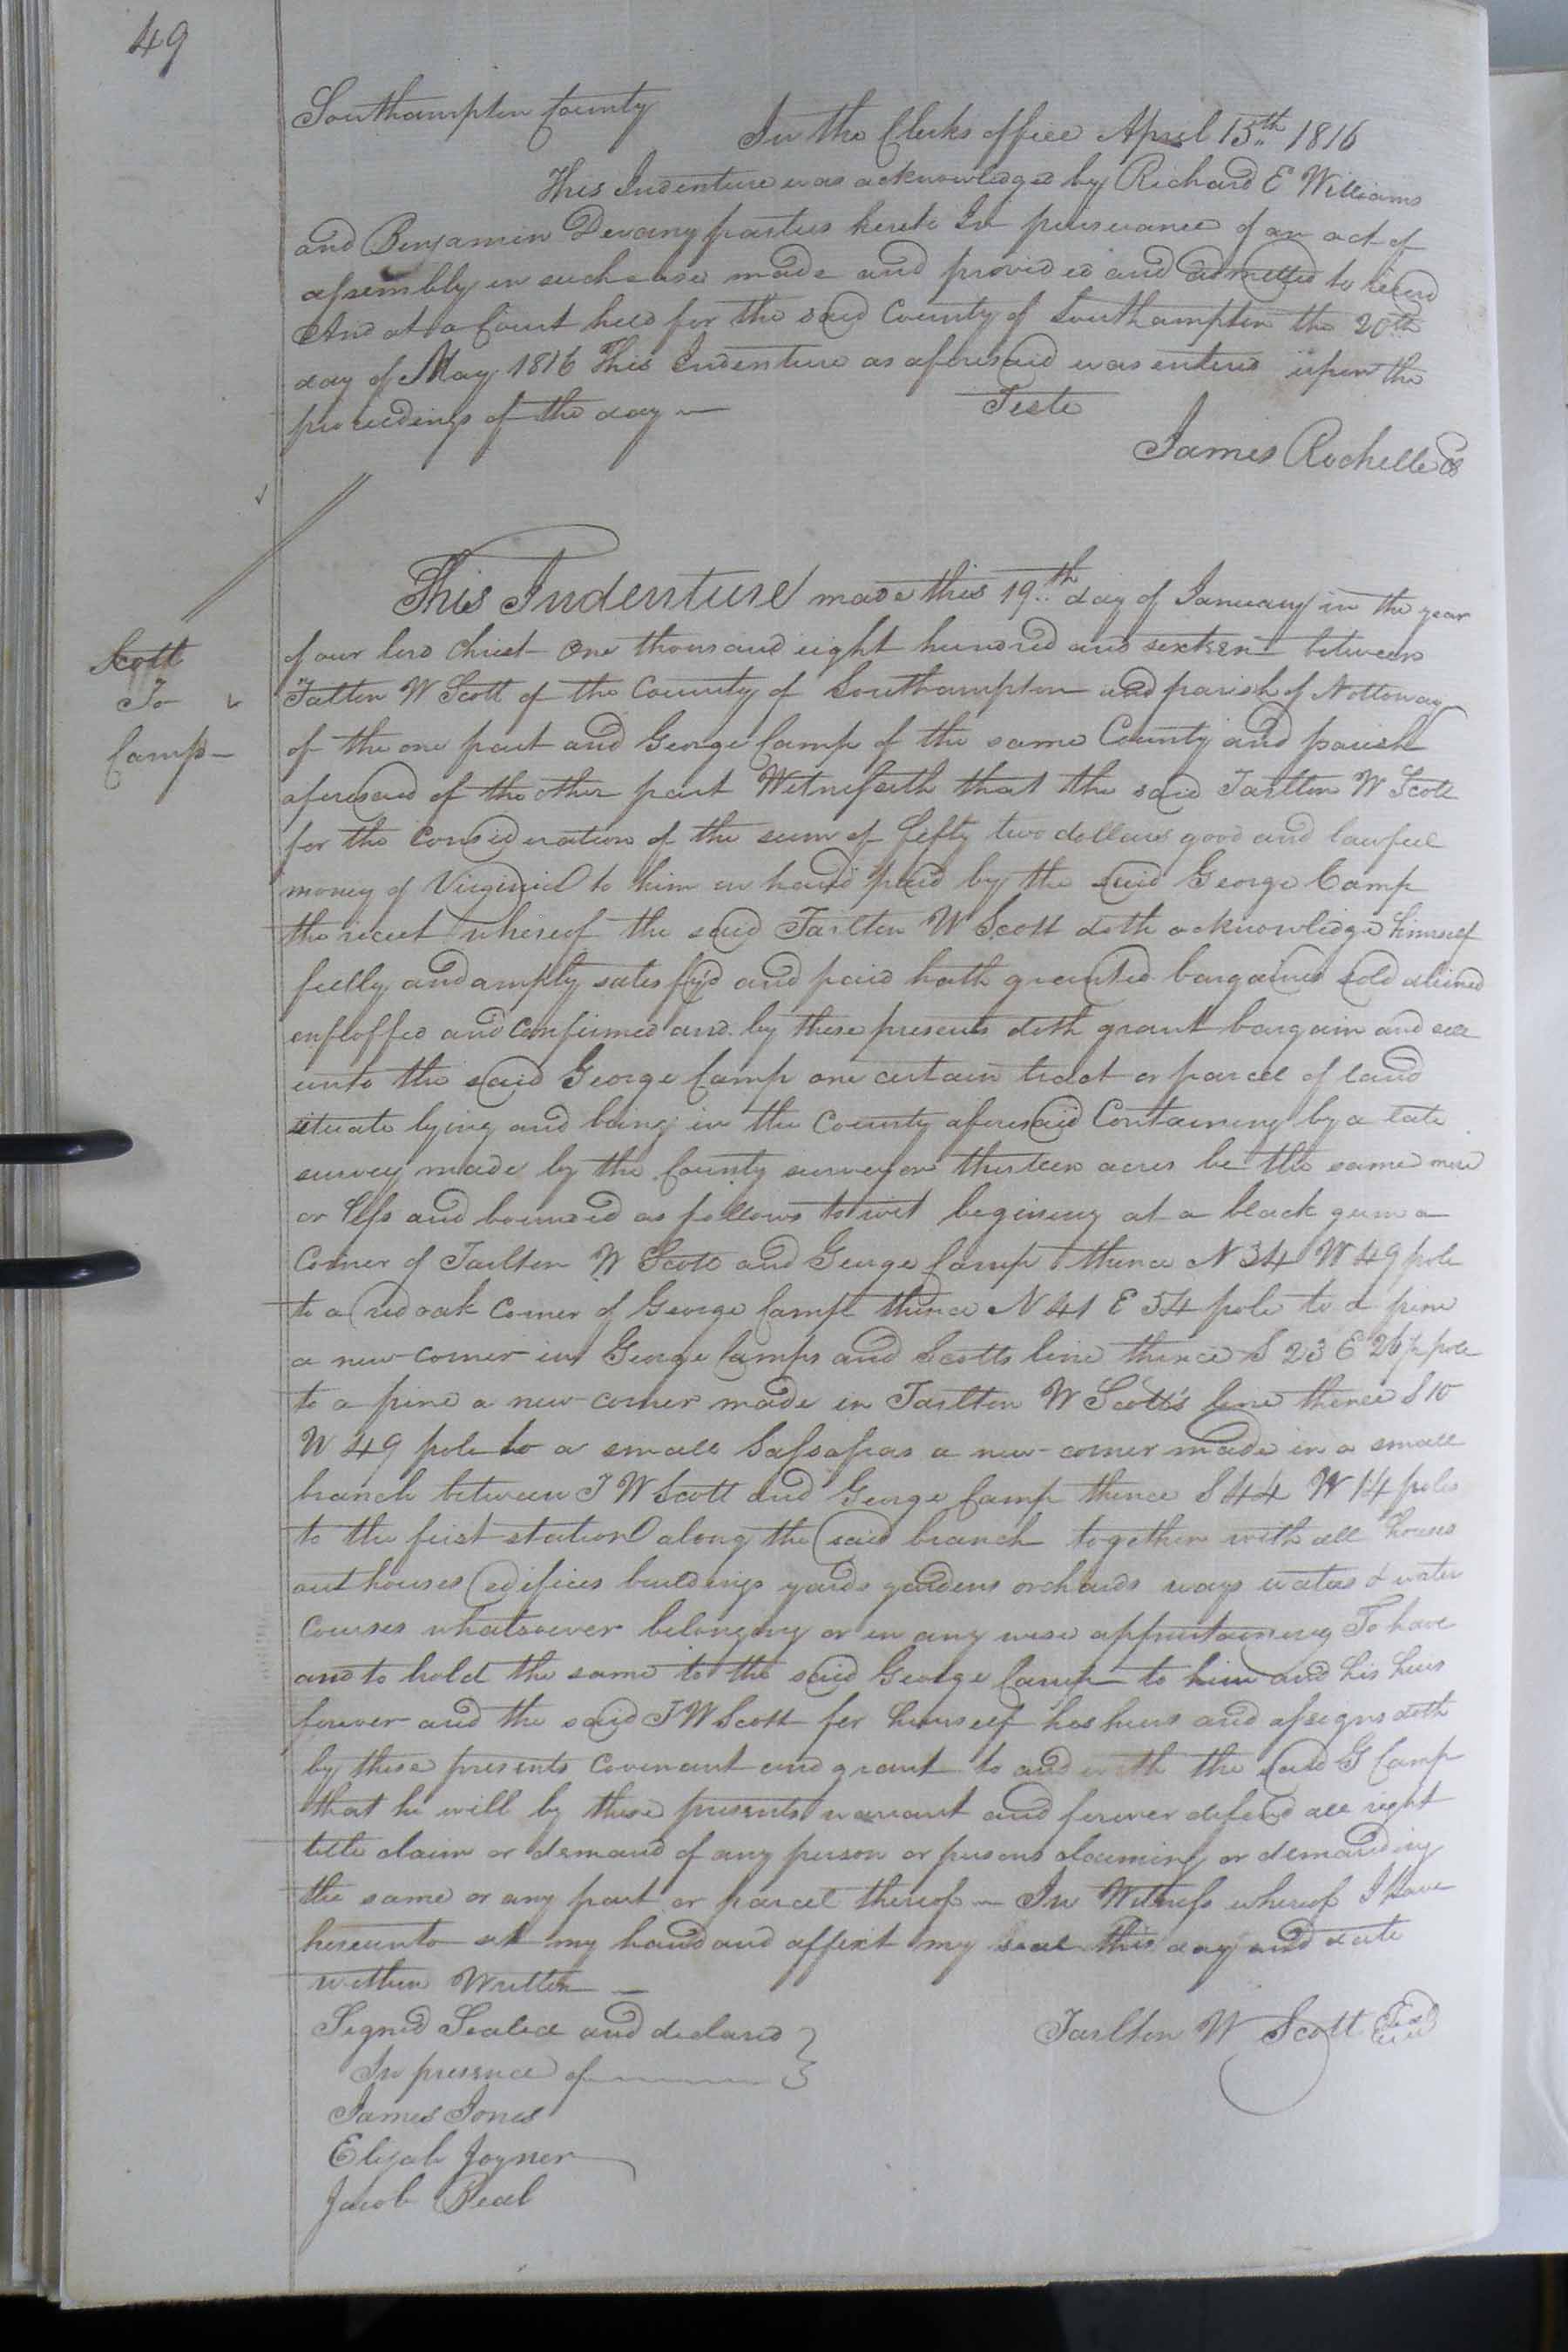 49
Southampton County
In the Clerks office April 15th 1816
This Indenture was acknowledged by Richard E Williams
and Benjamin Devany parties hereto In persuance of an act of
assembly in such case made and provided and admitted to record
And at a Court held for the said County of Southampton the 20th
day of May 1816 This Indenture as aforesaid was entered upon the
proceedings of the day —
Teste
James Rochelle CS
Scott
To
Camp —
This Indenture made this 19th day of January in the year
of our lord Christ One thousand eight hundred and sixteen between
Talton W Scott of the County of Southampton and parish of Nottoway
of the one part and George Camp of the same County and parish
aforesaid of the other part Witnesseth that the said Tarlton W Scott
for the Consideration of the sum of fifty two dollars good and lawful
money of Virginia to him in hand paid by the said George Camp
the receet whereof the said Tarlton W Scott doth acknowledge himself
fully and amply satesfyd and paid hath granted bargained sold aliened
enfloffed and Confirmed and by these presents doth grant bargain and sell
unto the said George Camp one certain tract or parcel of land
situate lying and being in the County aforesaid Containing by a late
survey made by the County surveyor thirteen acres be the same more
or less and bounded as follows to wit begining at a black gum a
Corner of Tarlton W Scott and George Camp thence N 34 W 49 pole
to a red oak Corner of George Camp thence N 41 E 54 pole to a pine
a new corner in George Camps and Scotts line thence S 23 E 26½ pole
to a pine a new corner made in Tarlton W Scott's line thence S 10
W 49 pole to a small Sassafras a new corner made in a small
branch between T W Scott and George Camp thence S 44 W 14 poles
to the first station along the said branch together with all houses
out houses edifices buildings yards gardens orchards ways waters & water
Courses whatsoever belonging or in any wise appurtaining To have
and to hold the same to the said George Camp to him and his heirs
forever and the said T W Scott for himself his heirs and assigns doth
by these presents Covenant and grant to and with the said G Camp
that he will by these presents warrant and forever defend all right
title claim or demand of any person or persons claiming or demanding
the same or any part or parcel thereof — In Witness whereof I have
hereunto set my hand and affixt my seal this day and date
within Written —
Signed Sealed and declared
In presence of
Tarlton W Scott Seal
James Jones
Elijah Joyner
Jacob Beal